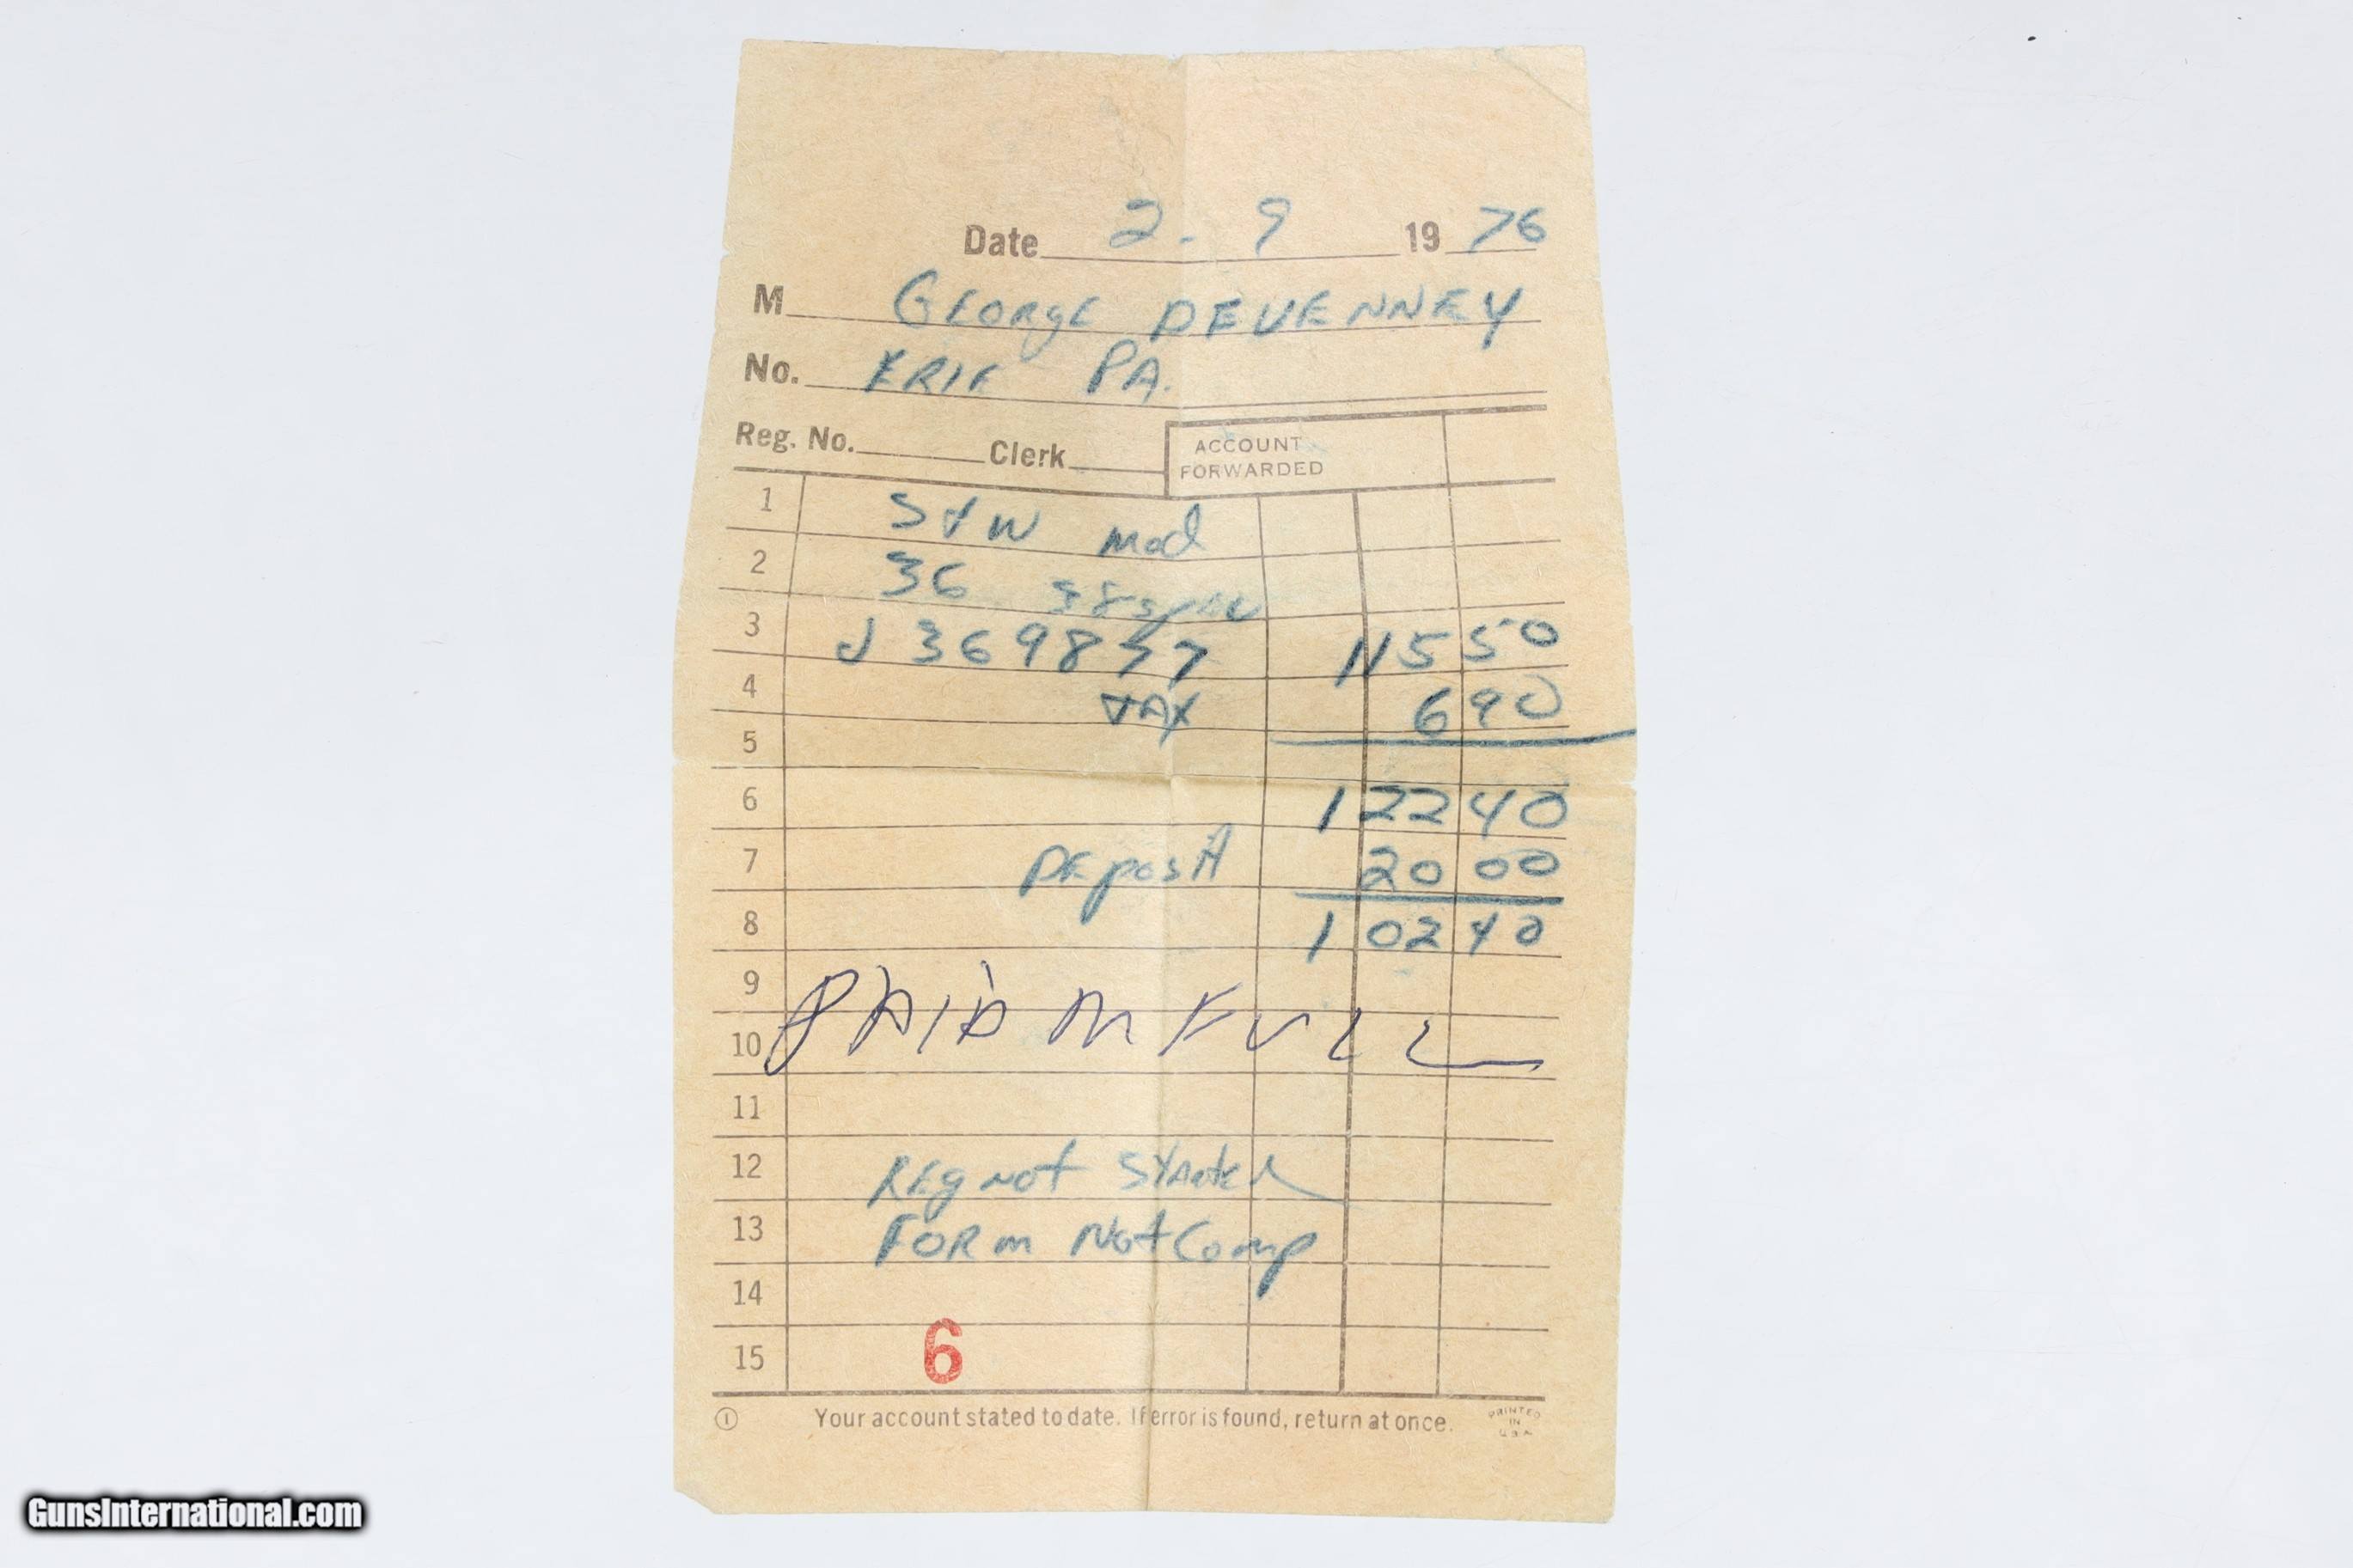 Date 2. 9 19 76
M GEORGE DEVENNEY
No. ERIE PA.
Reg. No. Clerk ACCOUNT FORWARDED
1 S+W mod
2 36 38 SPECL
3 J369857 115 50
4 TAX 6 90
5
6 122 40
7 DEposit 20 00
8 102 40
9
10 PAID IN FULL
11
12 REg not STArted
13 FORM Not Comp
14
15 6
1 Your account stated to date. If error is found, return at once. PRINTED IN U.S.A.
GunsInternational.com